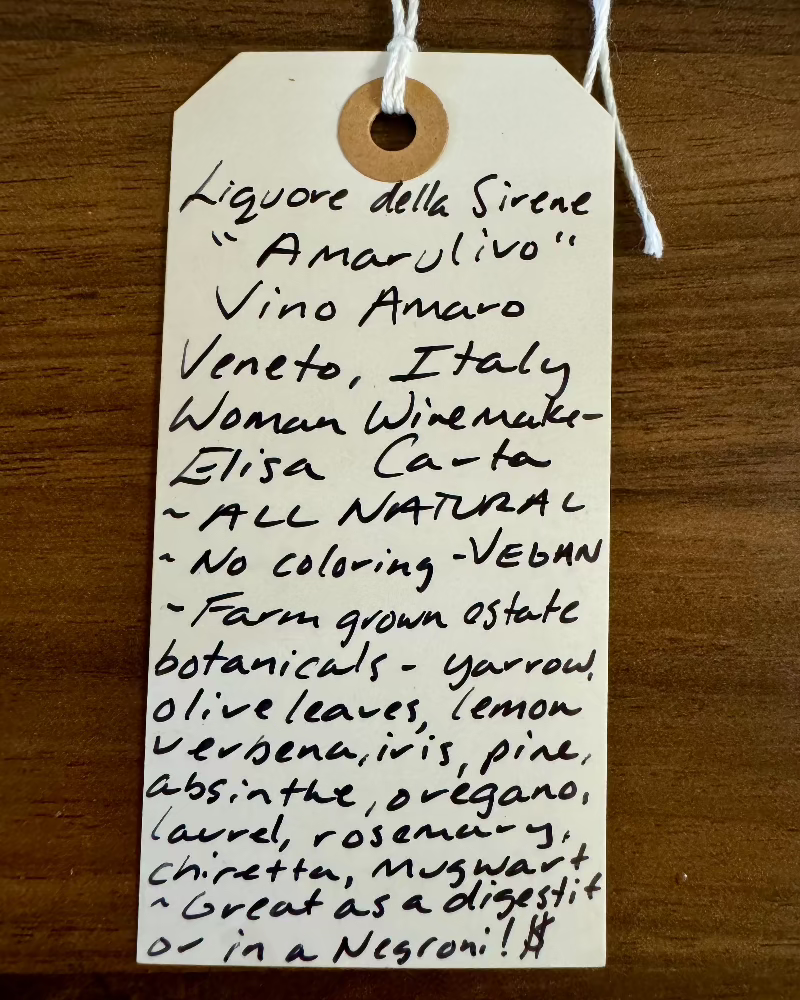 Liquore della Sirene
"Amarulivo"
Vino Amaro
Veneto, Italy
Woman Winemaker
Elisa Carta
~ ALL NATURAL
~ No coloring - VEGAN
~ Farm grown estate
botanicals - yarrow,
olive leaves, lemon
verbena, iris, pine,
absinthe, oregano,
laurel, rosemary,
chiretta, Mugwart
~ Great as a digestif
or in a Negroni! $